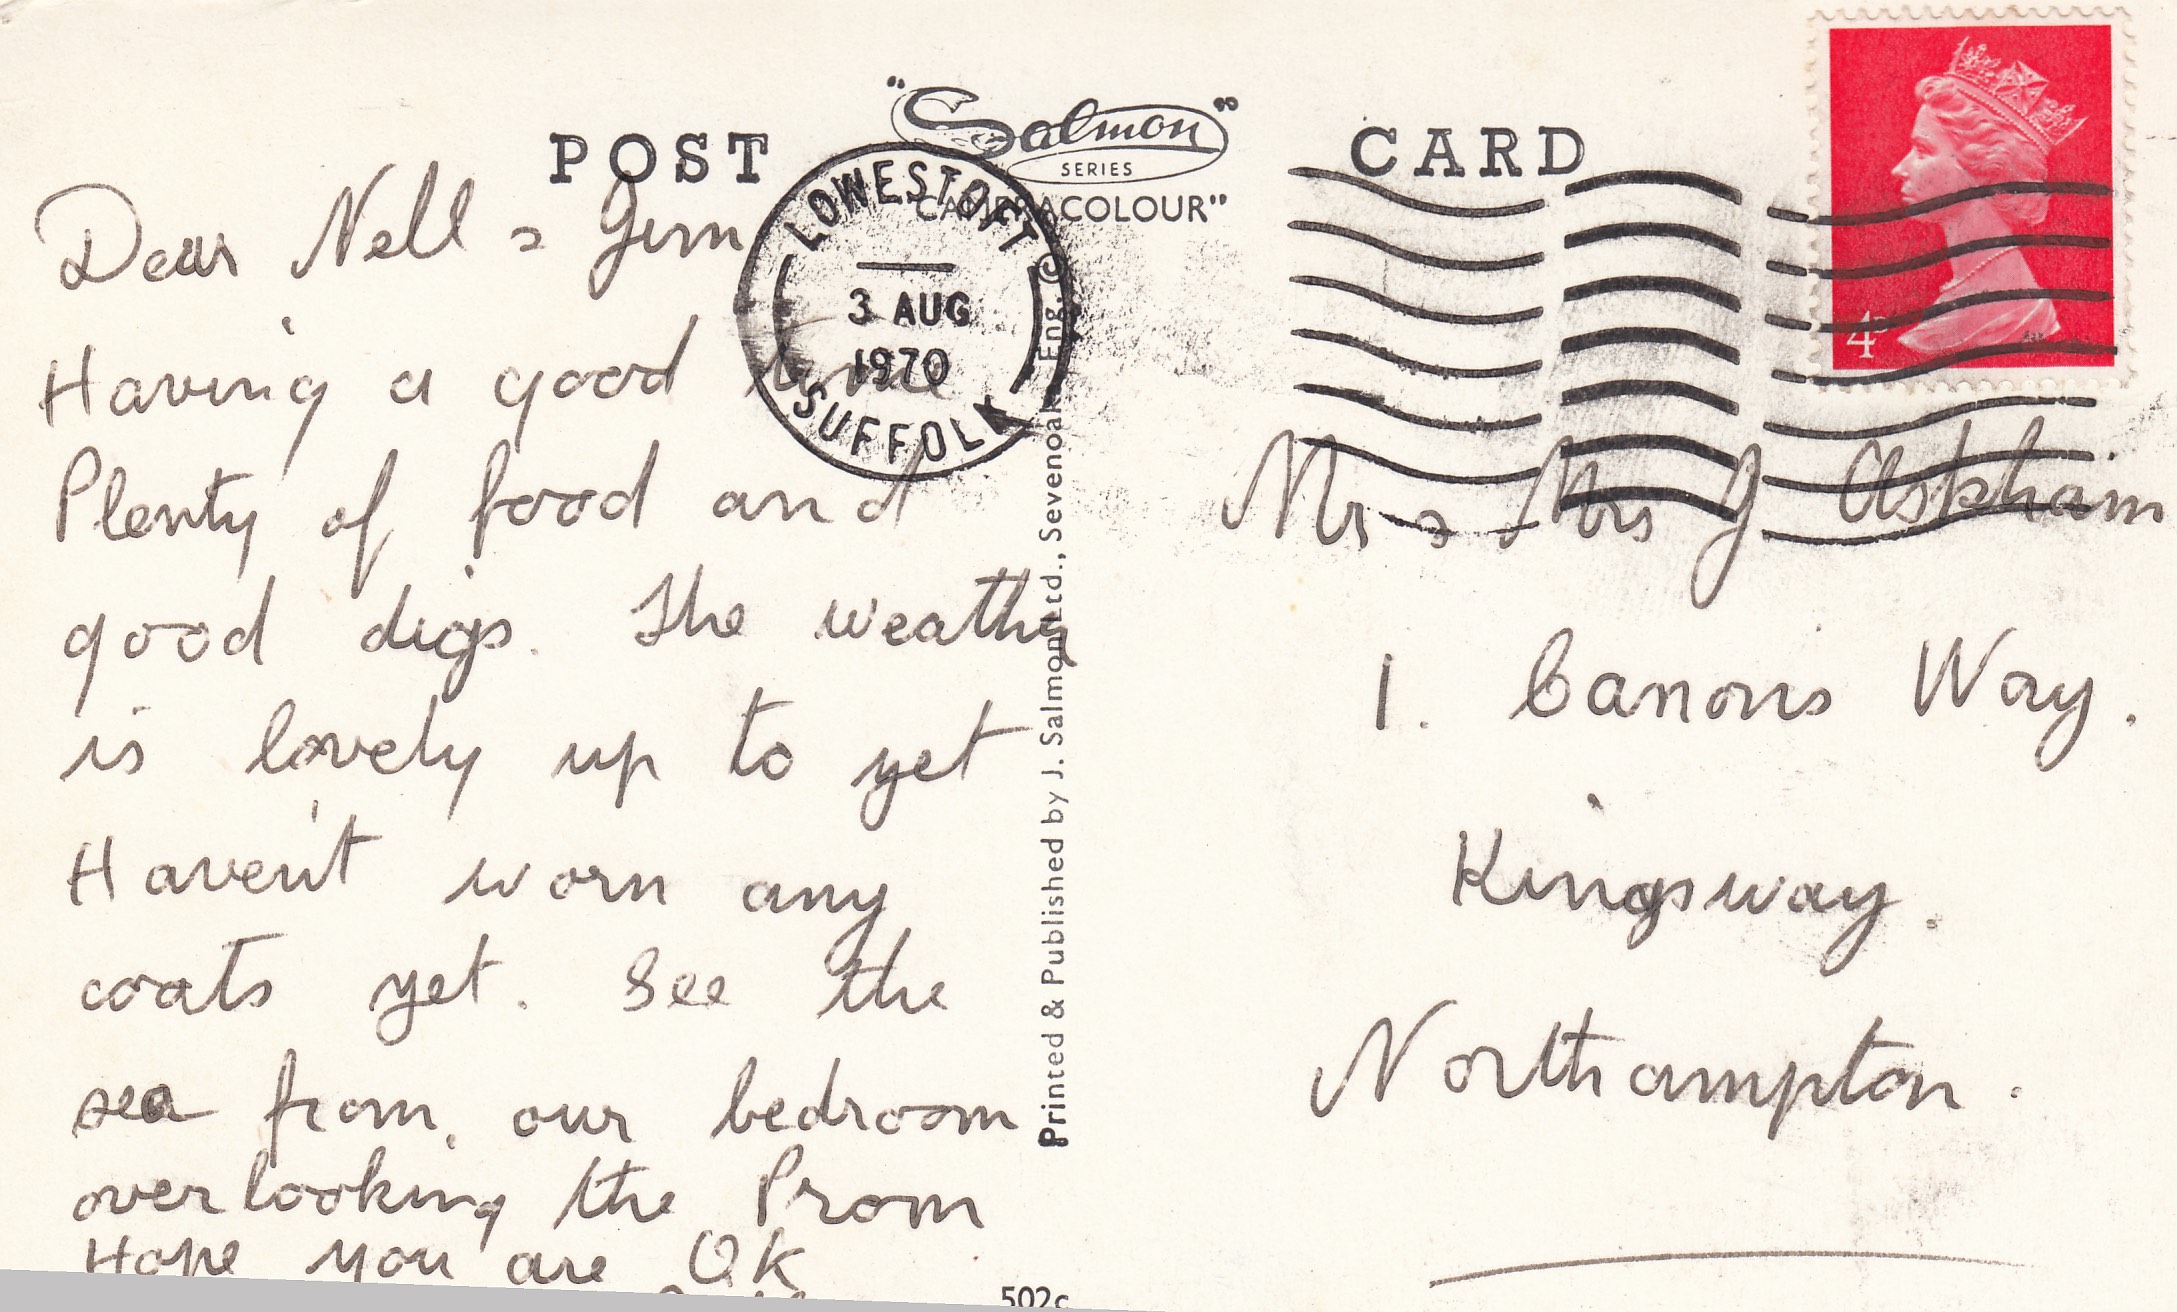 POST CARD
"Salmon"
SERIES
"CAMERACOLOUR"
LOWESTOFT
3 AUG
1970
SUFFOLK
4D
Dear Nell & Jim
Having a good time
Plenty of food and
good digs. The weather
is lovely up to yet
Haven't worn any
coats yet. See the
sea from, our bedroom
overlooking the Prom
Hope you are OK
Printed & Published by J. Salmon Ltd., Sevenoaks, Eng. ©
Mr & Mrs J Askham
1. Canons Way.
Kingsway.
Northampton.
502c